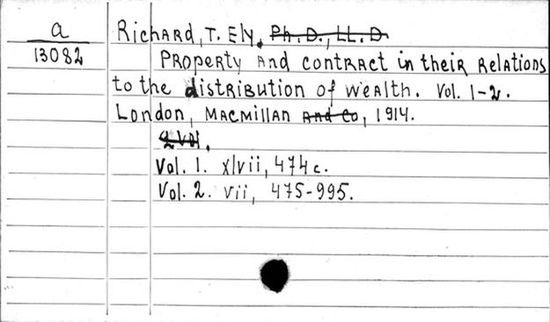 a
13082
Richard, T. Ely. Ph. D., LL. D
Property and contract in their relations
to the distribution of wealth. Vol. 1-2.
London, Macmillan and Co, 1914.
2 vol.
Vol. 1. xlvii, 474 c.
Vol. 2. vii, 475-995.